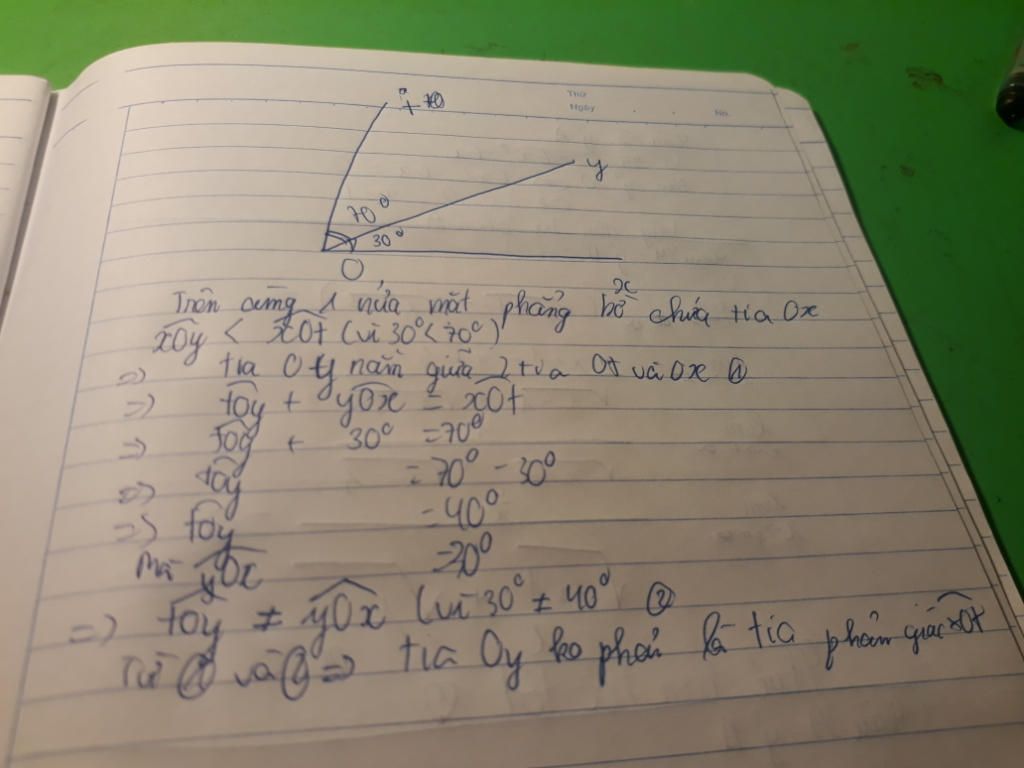 Thứ
Ngày
No.
t
y
70°
30°
O
x
Trên cùng 1 nửa mặt phẳng bờ chứa tia Ox
xOy < xOt (vì 30° < 70°)
=> tia Oy nằm giữa 2 tia Ot và Ox ①
=> tOy + yOx = xOt
=> tOy + 30° = 70°
=> tOy = 70° - 30°
=> tOy = 40°
Mà yOx = 30°
=> tOy ≠ yOx (vì 30° ≠ 40° ②
Từ ① và ② => tia Oy ko phải là tia phân giác xOt